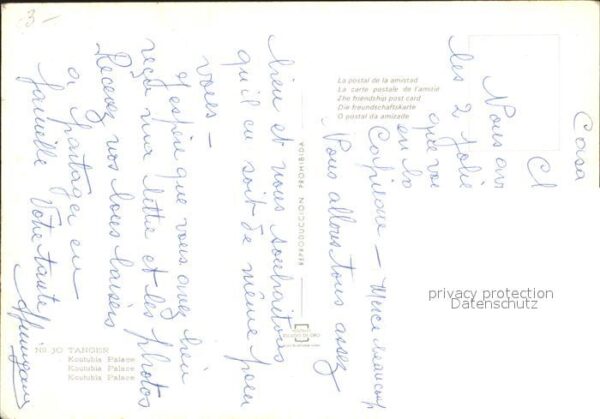 3-
Casa
Cl
Nous av
les 2 jolie
que vo
en la
Merci beaucoup
Nous allons tous assez
bien et nous souhaitons
qu'il en soit de même pour
vous -
J'espère que vous avez bien
reçu ma lettre et les photos
Recevez nos bons baisers
à partager en
famille Votre tante
La postal de la amistad
La carte postale de l'amitié
The friendship post card
Die freundschaftskarte
O postal da amizade
REPRODUCCION PROHIBIDA
NO. 30 TANGER
Koutubia Palace
Koutubia Palace
Koutubia Palace
privacy protection
Datenschutz